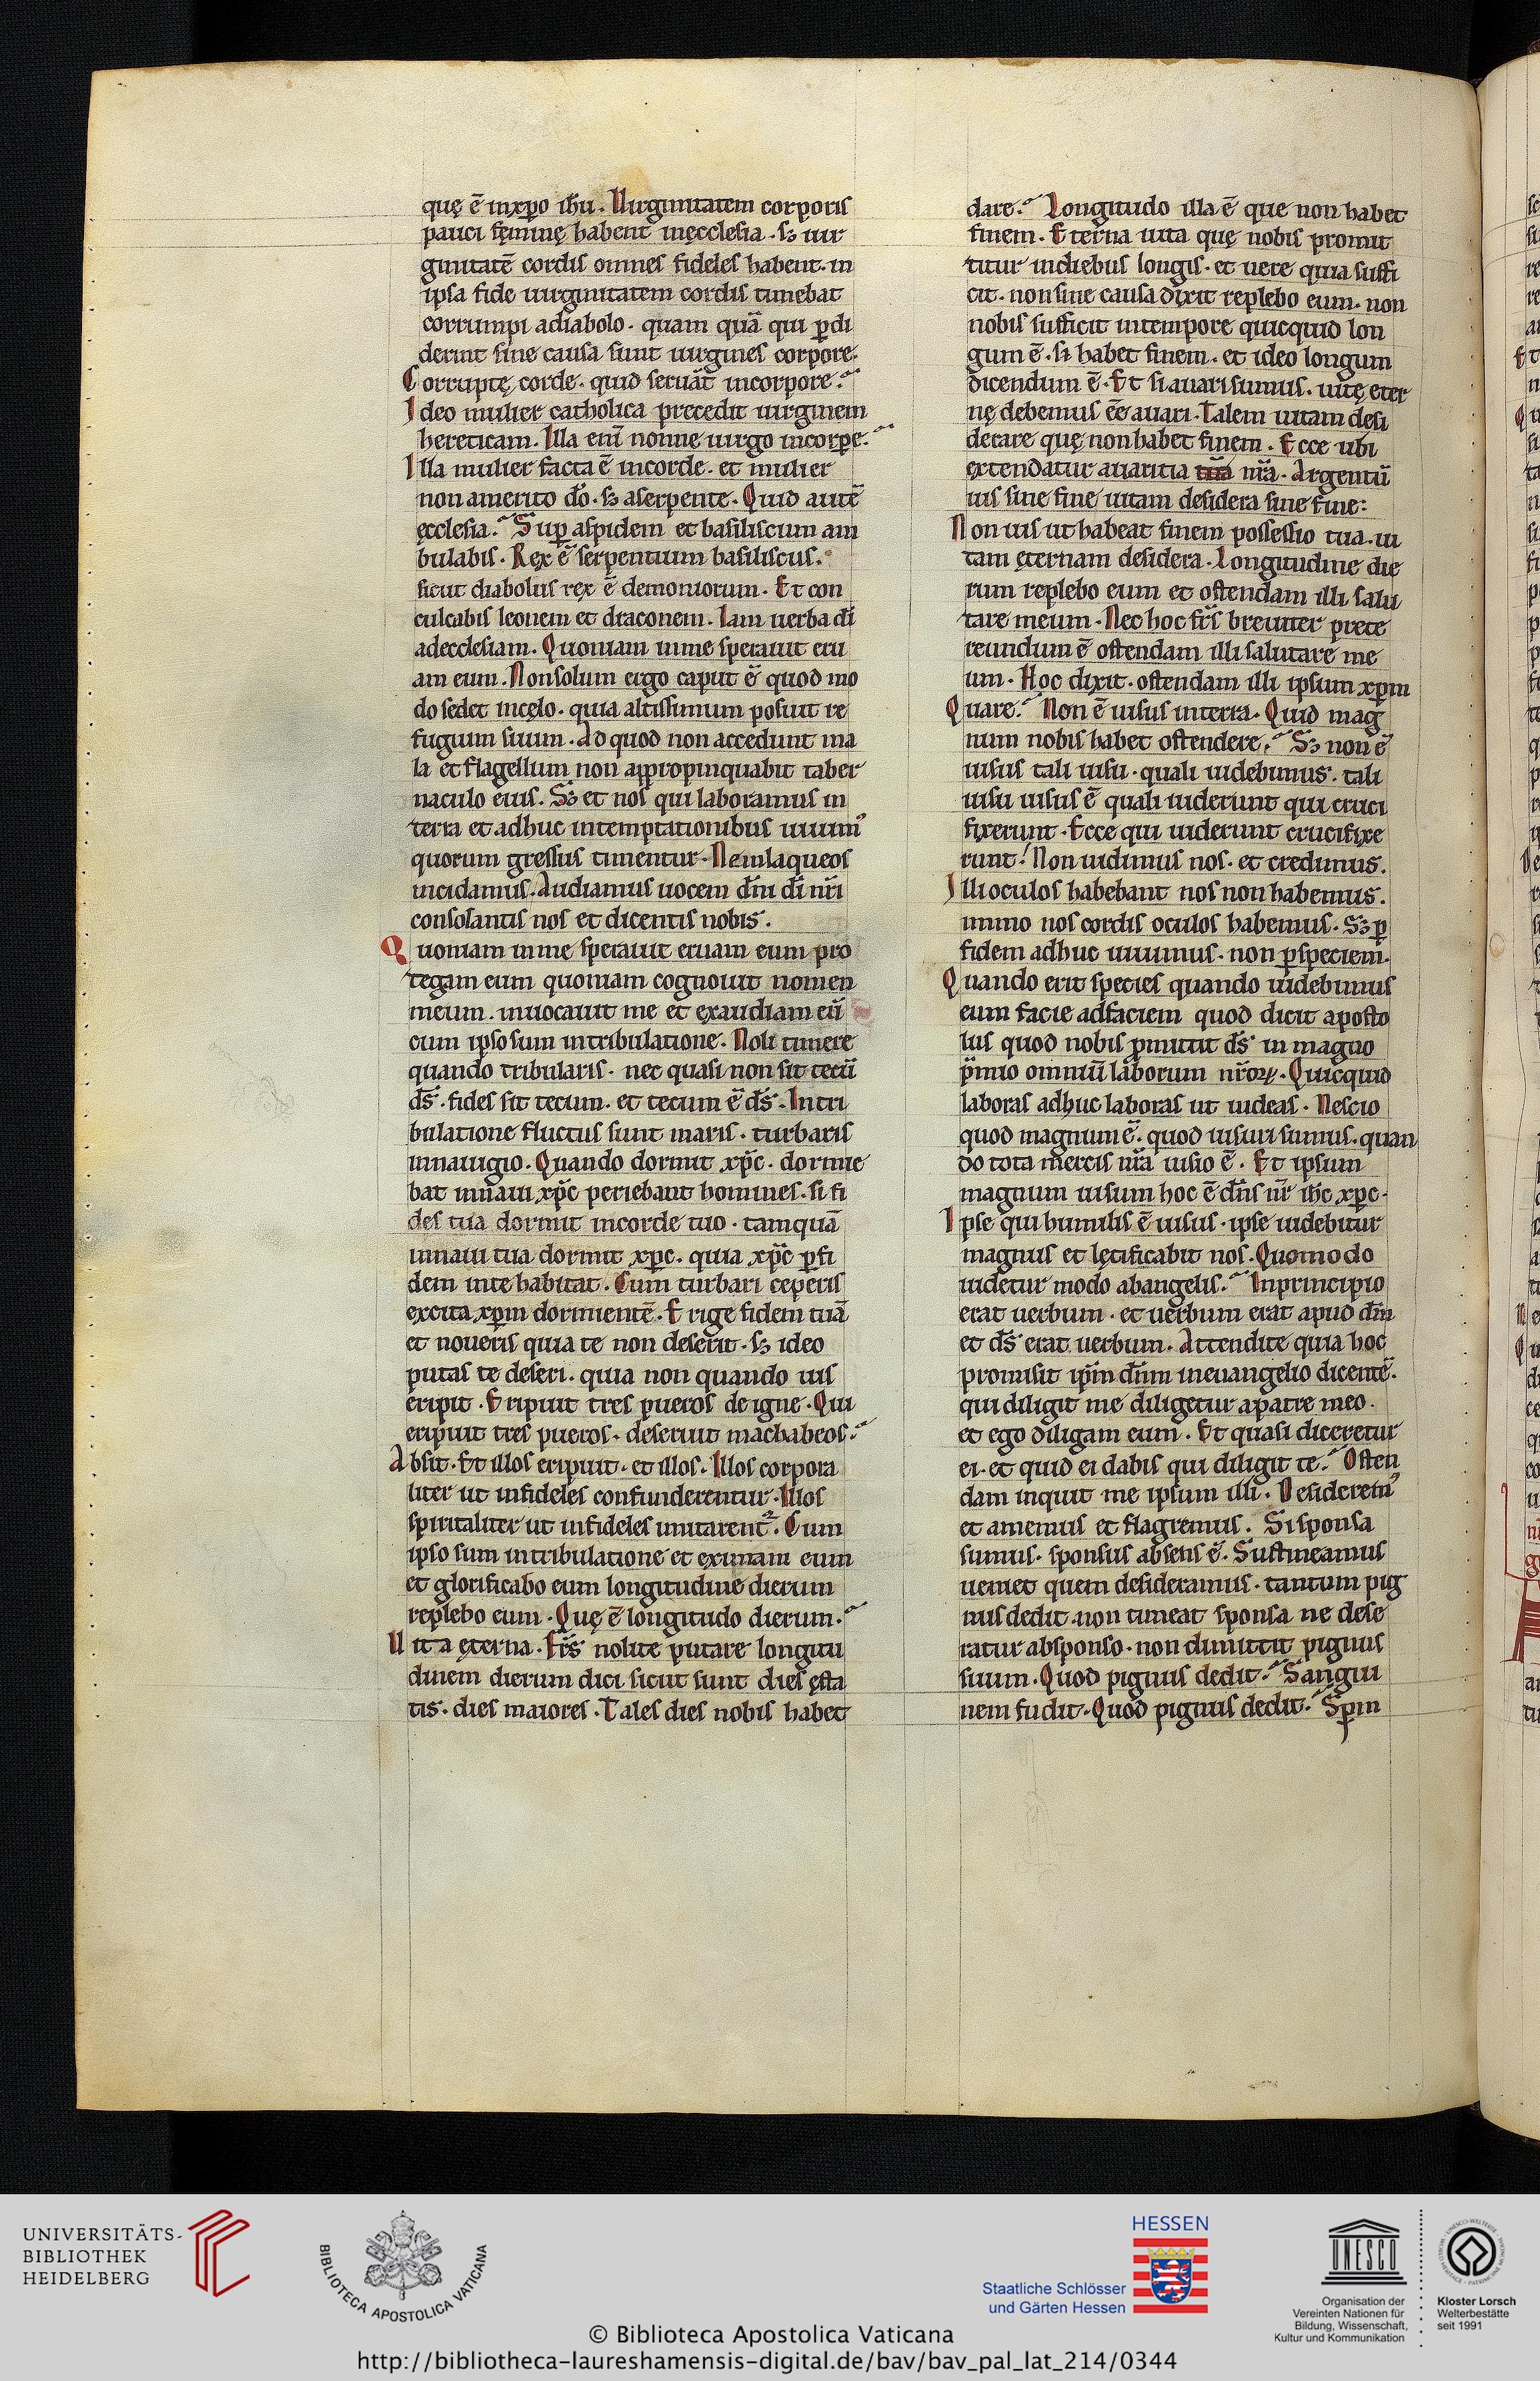 quę ē inxp̄o ih̄u. Uirginitatem corporis
pauci fęminę habent inęcclesia. sꝫ uir
ginitatē cordis omnes fideles habent. in
ipsa fide uirginitatem cordis timebat
corrumpi adiabolo. quam quā qui ꝑdi
derint sine causa sunt uirgines corpore.
Corruptę corde. quid seruāt incorpore?
Ideo mulier catholica precedit uirginem
hereticam. Illa eni᷑ nonne uirgo incorpe?
Illa mulier facta ē incorde. et mulier
non amerito do̅. sꝫ aserpente. Quid autē
ęcclesia? Suꝑ aspidem et basiliscum am
bulabis. Rex ē serpentium basiliscus.
sicut diabolus rex ē demoniorum. Et con
culcabis leonem et draconem. Iam uerba di̅
adecclesiam. Quoniam inme sperauit eru
am eum. Nonsolum ergo caput ē quod mo
do sedet incęlo. quia altissimum posuit re
fugium suum. Ad quod non accedunt ma
la et flagellum non appropinquabit taber
naculo eius. Sꝫ et nos qui laboramus in
terra et adhuc intemptationibus uiuim᾿
quorum gressus timentur. Neinlaqueos
incidamus. Audiamus uocem dn̅i di̅ nr̅i
consolantis nos et dicentis nobis.
Quoniam inme sperauit eruam eum pro
tegam eum quoniam cognouit nomen
meum. inuocauit me et exaudiam eū
cum ipso sum intribulatione. Noli timere
quando tribularis. nec quasi non sit tecū
ds̅. fides sit tecum. et tecum ē ds̅. Intri
bulatione fluctus sunt maris. turbaris
innauigio. Quando dormit xp̅c. dormie
bat innaui xp̅c periebant homines. si fi
des tua dormit incorde tuo. tamquā
innaui tua dormit xpc. quia xp̅c ꝑfi
dem inte habitat. Cum turbari ceperis
excita xp̅m dormientē. Erige fidem tuā
et noueris quia te non deserit. sꝫ ideo
putas te deseri. quia non quando uis
eripit. Eripuit tres pueros de igne. Qui
eripuit tres pueros. deseruit machabeos?
Absit. Et illos eripuit. et illos. Illos corpora
liter ut infideles confunderentur. Illos
spiritaliter ut infideles imitarent᷑. Cum
ipso sum intribulatione et eximam eum
et glorificabo eum longitudine dierum
replebo eum. Quę ē longitudo dierum?
Uita ęterna. Fr̅s nolite putare longitu
dinem dierum dici sicut sunt dies ęsta
tis. dies maiores. Tales dies nobis habet
dare? Longitudo illa ē que non habet
finem. Eterna uita quę nobis promit
titur indiebus longis. et uere quia suffi
cit. non sine causa dixit replebo eum. non
nobis sufficit intempore quicquid lon
gum ē. si habet finem. et ideo longum
dicendum ē. Et si auari sumus. uitę eter
nę debemus ēē auari. Talem uitam desi
derare quę non habet finem. Ecce ubi
extendatur auaritia nr̅a. Argentū
uis sine fine uitam desidera sine fine:
Non uis ut habeat finem possessio tua. ui
tam ęternam desidera. Longitudine die
rum replebo eum et ostendam illi salu
tare meum. Nec hoc fr̅s breuiter prete
reundum ē ostendam illi salutare me
um. Hoc dixit. ostendam illi ipsum xp̅m
Quare? Non ē uisus interra. Quid mag
num nobis habet ostendere? Sꝫ non ē
uisus tali uisu. quali uidebimus. tali
uisu uisus ē quali uiderunt qui cruci
fixerunt. Ecce qui uiderunt crucifixe
runt! Non uidimus nos. et credimus.
Illi oculos habebant nos non habemus.
immo nos cordis oculos habemus. Sꝫ ꝑ
fidem adhuc uiuimus. non ꝑspeciem.
Quando erit species quando uidebimus
eum facie adfaciem quod dicit aposto
lus quod nobis ꝓmittit ds̅ in magno
p̅mio omniū laborum nr̅oꝝ. Quicquid
laboras adhuc laboras ut uideas. Nescio
quod magnum ē. quod uisuri sumus. quan
do tota mercis nr̅a uisio ē. Et ipsum
magnum uisum hoc ē dn̅s nr̅ ih̅c xp̅c.
Ipse qui humilis ē uisus. ipse uidebitur
magnus et lętificabit nos. Quomodo
uidetur modo abangelis? Inprincipio
erat uerbum. et uerbum erat apud dm̅
et ds̅ erat uerbum. Attendite quia hoc
promisit ip̅m dn̅m ineuangelio dicentē.
qui diligit me diligetur apatre meo.
et ego diligam eum. Et quasi diceretur
ei. et quid ei dabis qui diligit te? Osten
dam inquit me ipsum illi. Desiderem᾿
et amemus et flagremus. Si sponsa
sumus. sponsus absens ē. Sustineamus
ueniet quem desideramus. tantum pig
nus dedit. non timeat sponsa ne dese
ratur absponso. non dimittit pignus
suum. Quod pignus dedit? Sangui
nem fudit. Quod pignus dedit? Sp̅m
UNIVERSITÄTS-
BIBLIOTHEK
HEIDELBERG
BIBLIOTECA APOSTOLICA VATICANA
HESSEN
Staatliche Schlösser
und Gärten Hessen
UNESCO
Organisation der
Vereinten Nationen für
Bildung, Wissenschaft,
Kultur und Kommunikation
Kloster Lorsch
Welterbestätte
seit 1991
© Biblioteca Apostolica Vaticana
http://bibliotheca-laureshamensis-digital.de/bav/bav_pal_lat_214/0344